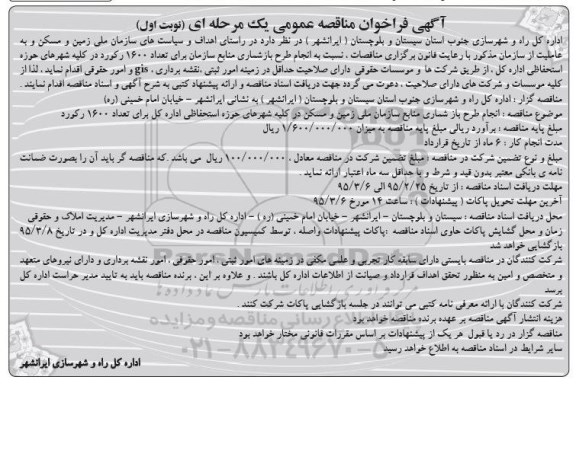 آگهی فراخوان مناقصه عمومی یک مرحله ای (نوبت اول)
اداره کل راه و شهرسازی جنوب استان سیستان و بلوچستان ( ایرانشهر ) در نظر دارد در راستای اهداف و سیاست های سازمان ملی زمین و مسکن و به
عاملیت از سازمان مذکور با رعایت قانون برگزاری مناقصات ، نسبت به انجام طرح بازشماری منابع سازمان برای تعداد ۱۶۰۰ رکورد در کلیه شهرهای حوزه
استحفاظی اداره کل ، از طریق شرکت ها و موسسات حقوقی دارای صلاحیت حداقل در زمینه امور ثبتی ،نقشه برداری ، gis و امور حقوقی اقدام نماید ، لذا از
کلیه موسسات و شرکت های دارای صلاحیت ، دعوت می گردد جهت دریافت اسناد مناقصه و ارائه پیشنهاد کتبی به شرح آگهی و اسناد مناقصه اقدام نمایند .
مناقصه گزار : اداره کل راه و شهرسازی جنوب استان سیستان و بلوچستان ( ایرانشهر ) به نشانی ایرانشهر – خیابان امام خمینی (ره)
موضوع مناقصه : انجام طرح باز شماری منابع سازمان ملی زمین و مسکن در کلیه شهرهای حوزه استحفاظی اداره کل برای تعداد ۱۶۰۰ رکورد
مبلغ پایه مناقصه : برآورد ریالی مبلغ پایه مناقصه به میزان ۱/۶۰۰/۰۰۰/۰۰۰ ریال
مدت انجام کار : ۶ ماه از تاریخ قرارداد
مبلغ و نوع تضمین شرکت در مناقصه : مبلغ تضمین شرکت در مناقصه معادل ، ۱۰۰/۰۰۰/۰۰۰ ریال می باشد .که مناقصه گر باید آن را بصورت ضمانت
نامه ی بانکی معتبر بدون قید و شرط و با حداقل سه ماه اعتبار ارائه نماید .
مهلت دریافت اسناد مناقصه : از تاریخ ۹۵/۲/۲۵ الی ۹۵/۳/۶
آخرین مهلت تحویل پاکات ( پیشنهادات ) : ساعت ۱۴ مورخ ۹۵/۳/۶
محل دریافت اسناد مناقصه : سیستان و بلوچستان – ایرانشهر – خیابان امام خمینی (ره) – اداره کل راه و شهرسازی ایرانشهر – مدیریت املاک و حقوقی
زمان و محل گشایش پاکات حاوی اسناد مناقصه :پاکات پیشنهادات واصله ، توسط کمیسیون مناقصه در محل دفتر مدیریت اداره کل و در تاریخ ۹۵/۳/۸
بازگشایی خواهد شد
شرکت کنندگان در مناقصه بایستی دارای سابقه کار تجربی و علمی مکفی در زمینه های امور ثبتی ، امور حقوقی ، امور نقشه برداری و دارای نیروهای متعهد
و متخصص و امین به منظور تحقق اهداف قرارداد و صیانت از اطلاعات اداره کل باشند . و علاوه بر این ، برنده مناقصه باید به تایید مدیر حراست اداره کل
برسد
شرکت کنندگان با ارائه معرفی نامه کتبی می توانند در جلسه بازگشایی پاکات شرکت کنند .
هزینه انتشار آگهی مناقصه بر عهده برنده مناقصه خواهد بود
مناقصه گزار در رد یا قبول هر یک از پیشنهادات بر اساس مقررات قانونی مختار خواهد بود
سایر شرایط در اسناد مناقصه به اطلاع خواهد رسید
اداره کل راه و شهرسازی ایرانشهر
۰۲۱-۸۸۳۴۹۶۷۰-۵